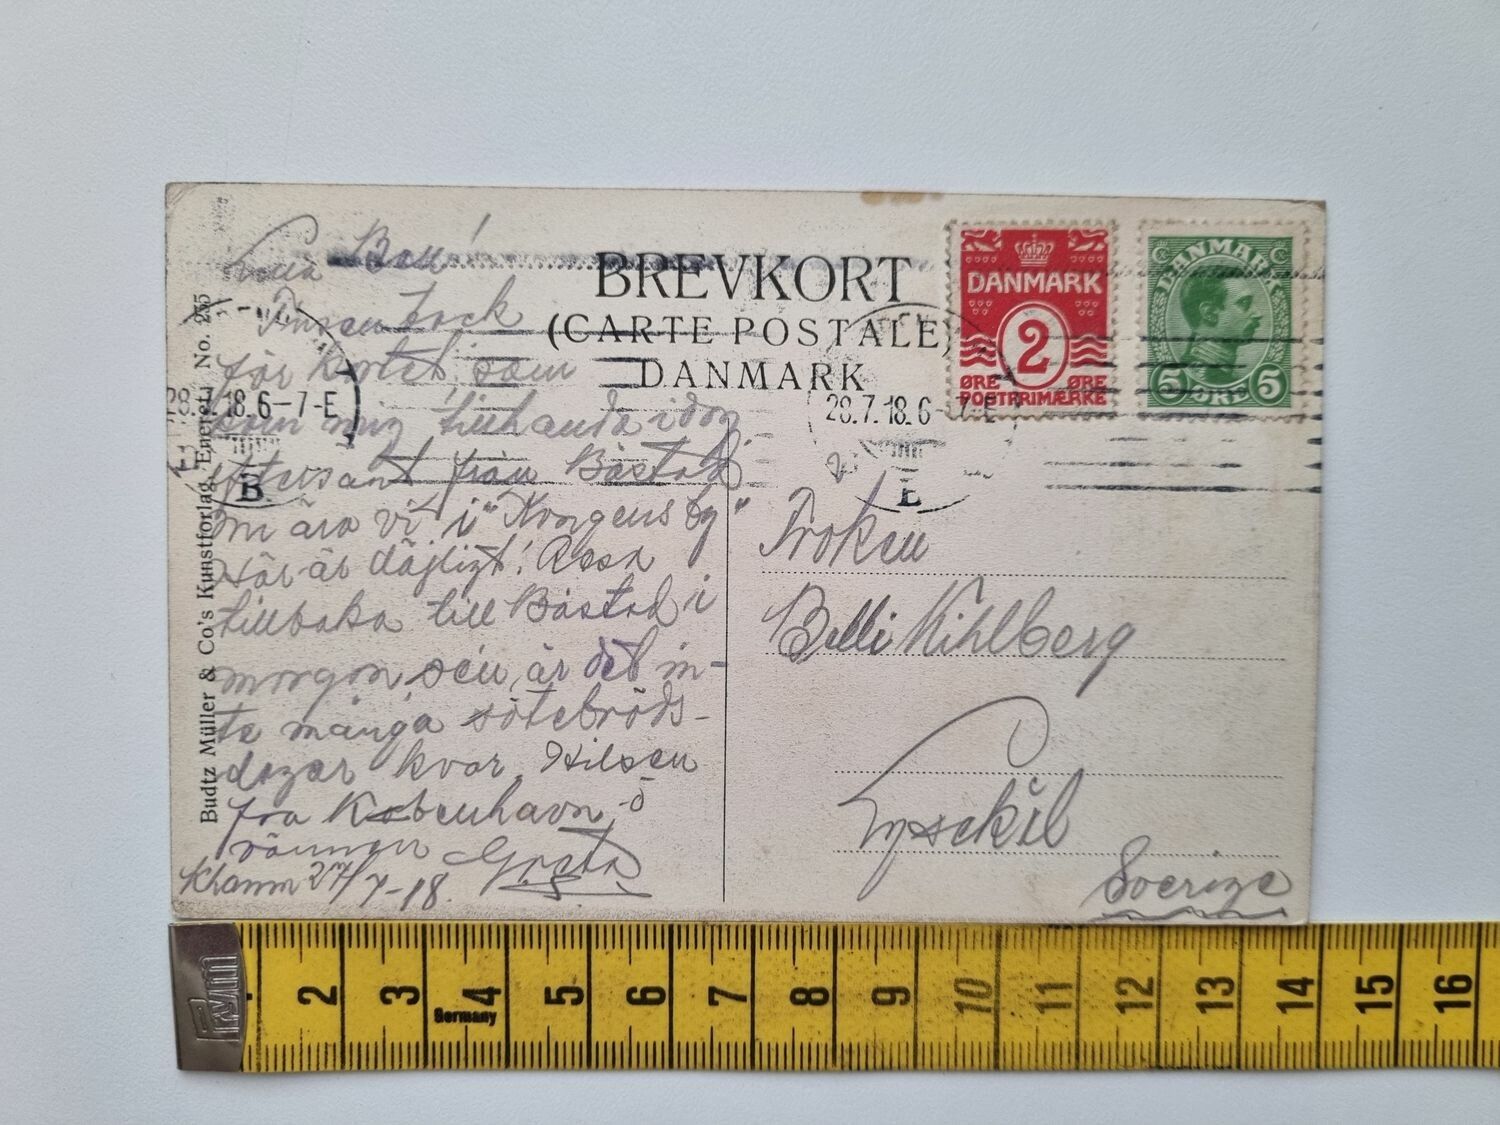 BREVKORT
(CARTE POSTALE)
DANMARK
DANMARK
2
ØRE ØRE
POSTFRIMÆRKE
DANMARK
5 ØRE 5
28.7.18. 6-7-E
B
28.7.18. 6-7-E
E
Budtz Müller & Co's Kunstforlag, Eneret. No. 255
Tusen tack
för kortet, som
kom mig tillhanda i dag
eftersänt från Båstad
Nu äro vi i "Kongens by"
Här är däjligt! Resa
tillbaka till Båstad i
morgon, sen är det in-
te många sötebröds-
dagar kvar. Hilsen
fra København o
vännen Greta
Khamn 27/7-18.
Fröken
Belli Kihlberg
Lysekil
Sverige
Prym
2 3 4 5 6 7 8 9 10 11 12 13 14 15 16
Germany